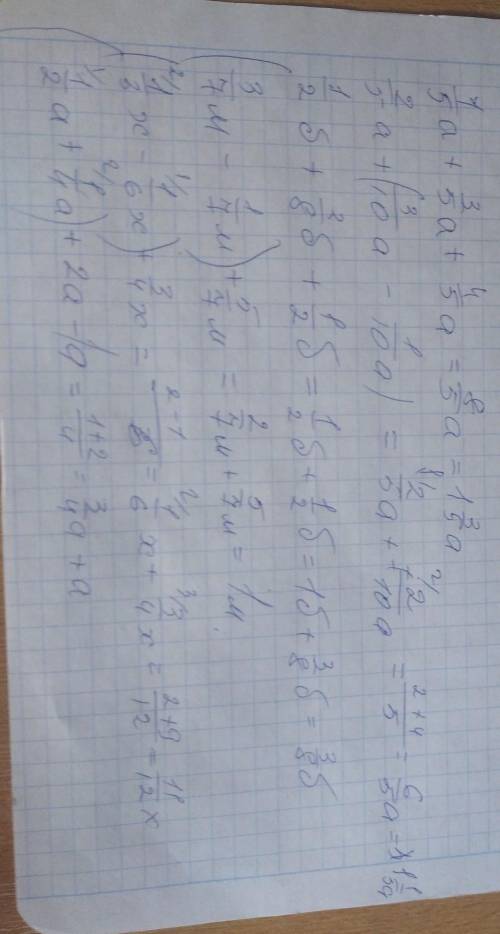 1/5 a + 3/5 a + 4/5 a = 8/5 a = 1 3/5 a
2/5 a + (3/10 a - 1/10 a) = 2/5 a + 2/10 a = 2+4/5 = 6/5 a = 1 1/5 a
1/2 b + 3/8 b + 1/2 b = 1/2 b + 1/2 b = 1b + 3/8 b = 3/8 b
(3/7 u - 1/7 u) + 5/7 u = 2/7 u + 5/7 u = 1u
(1/3 x - 1/6 x) + 3/4 x = 2-1/6 = 1/6 x + 3/4 x = 2+9/12 = 11/12 x
(1/2 a + 1/4 a) + 2a - 1a = 1+2/4 = 3/4 a + a